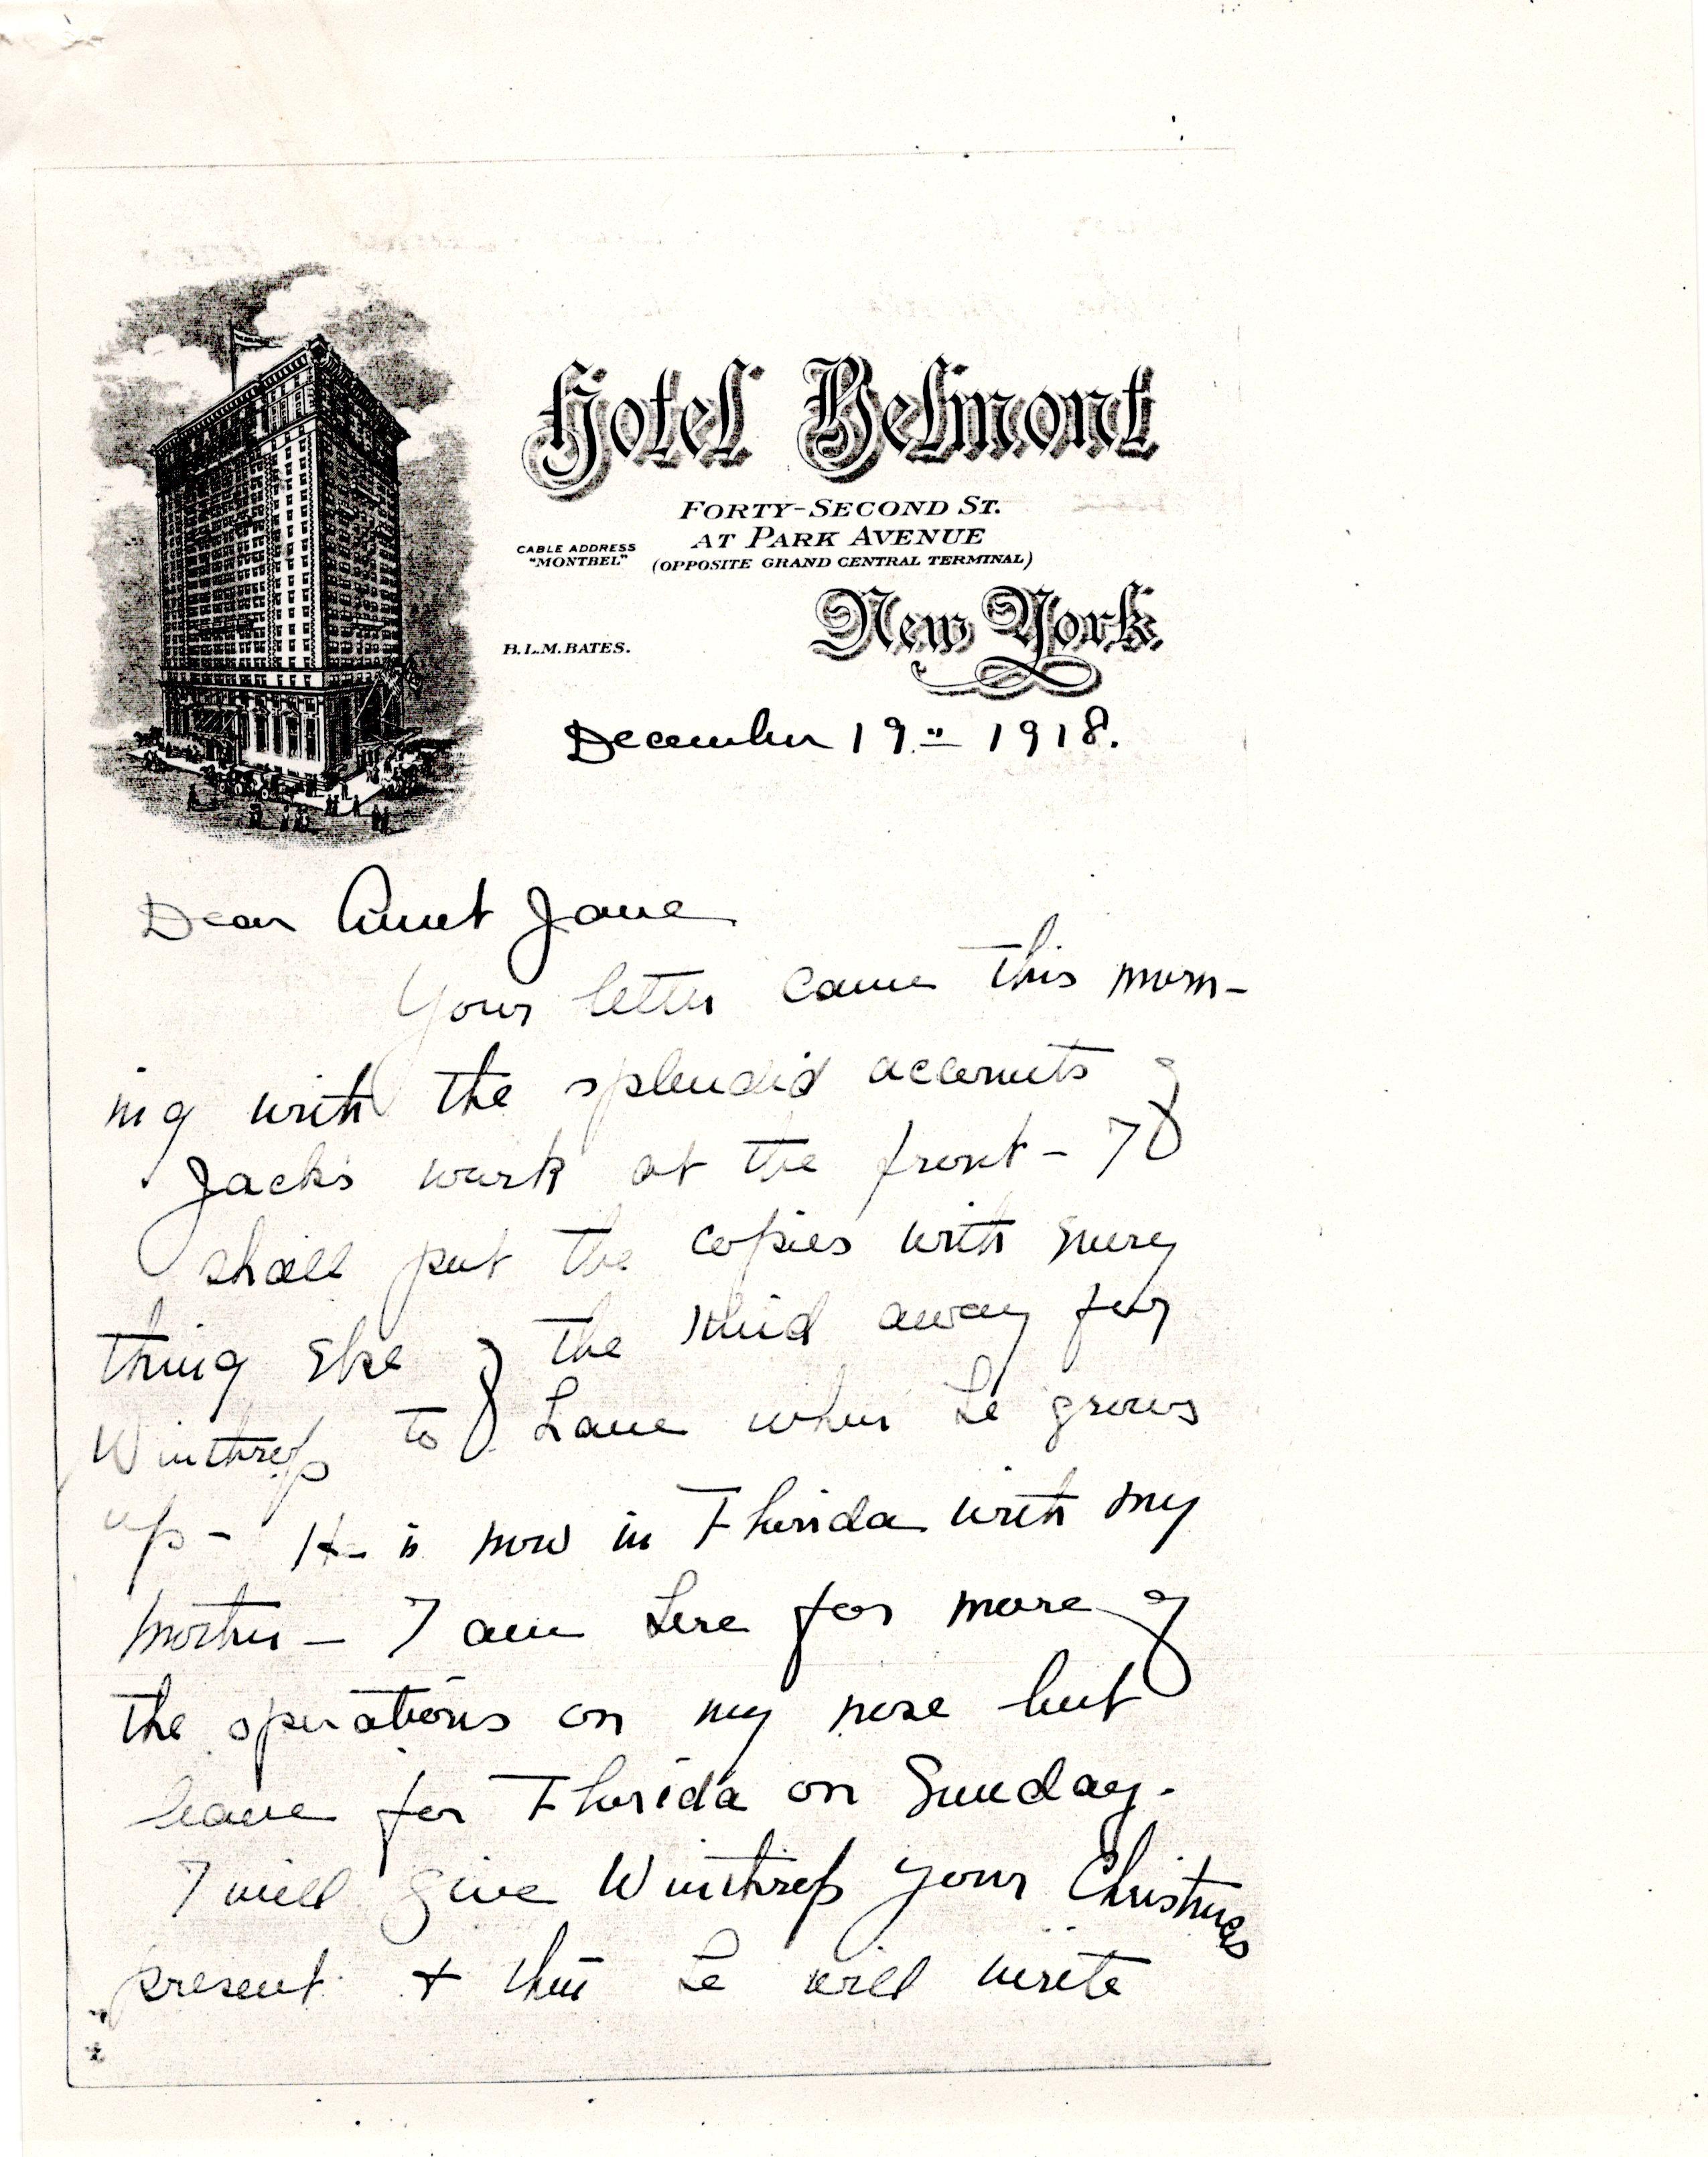 Hotel Belmont
FORTY-SECOND ST.
AT PARK AVENUE
CABLE ADDRESS
"MONTBEL"
(OPPOSITE GRAND CENTRAL TERMINAL)
New York.
B.L.M. BATES.
December 19" 1918.
Dear Aunt Jane
Your letter came this morn-
ing with the splendid accounts of
Jack's work at the front - I
shall put the copies with every
thing else of the kind away for
Winthrop to have when he grows
up - He is now in Florida with my
mother - I am here for more of
the operations on my nose but
leave for Florida on Sunday.
I will give Winthrop your Christmas
present + then he will write